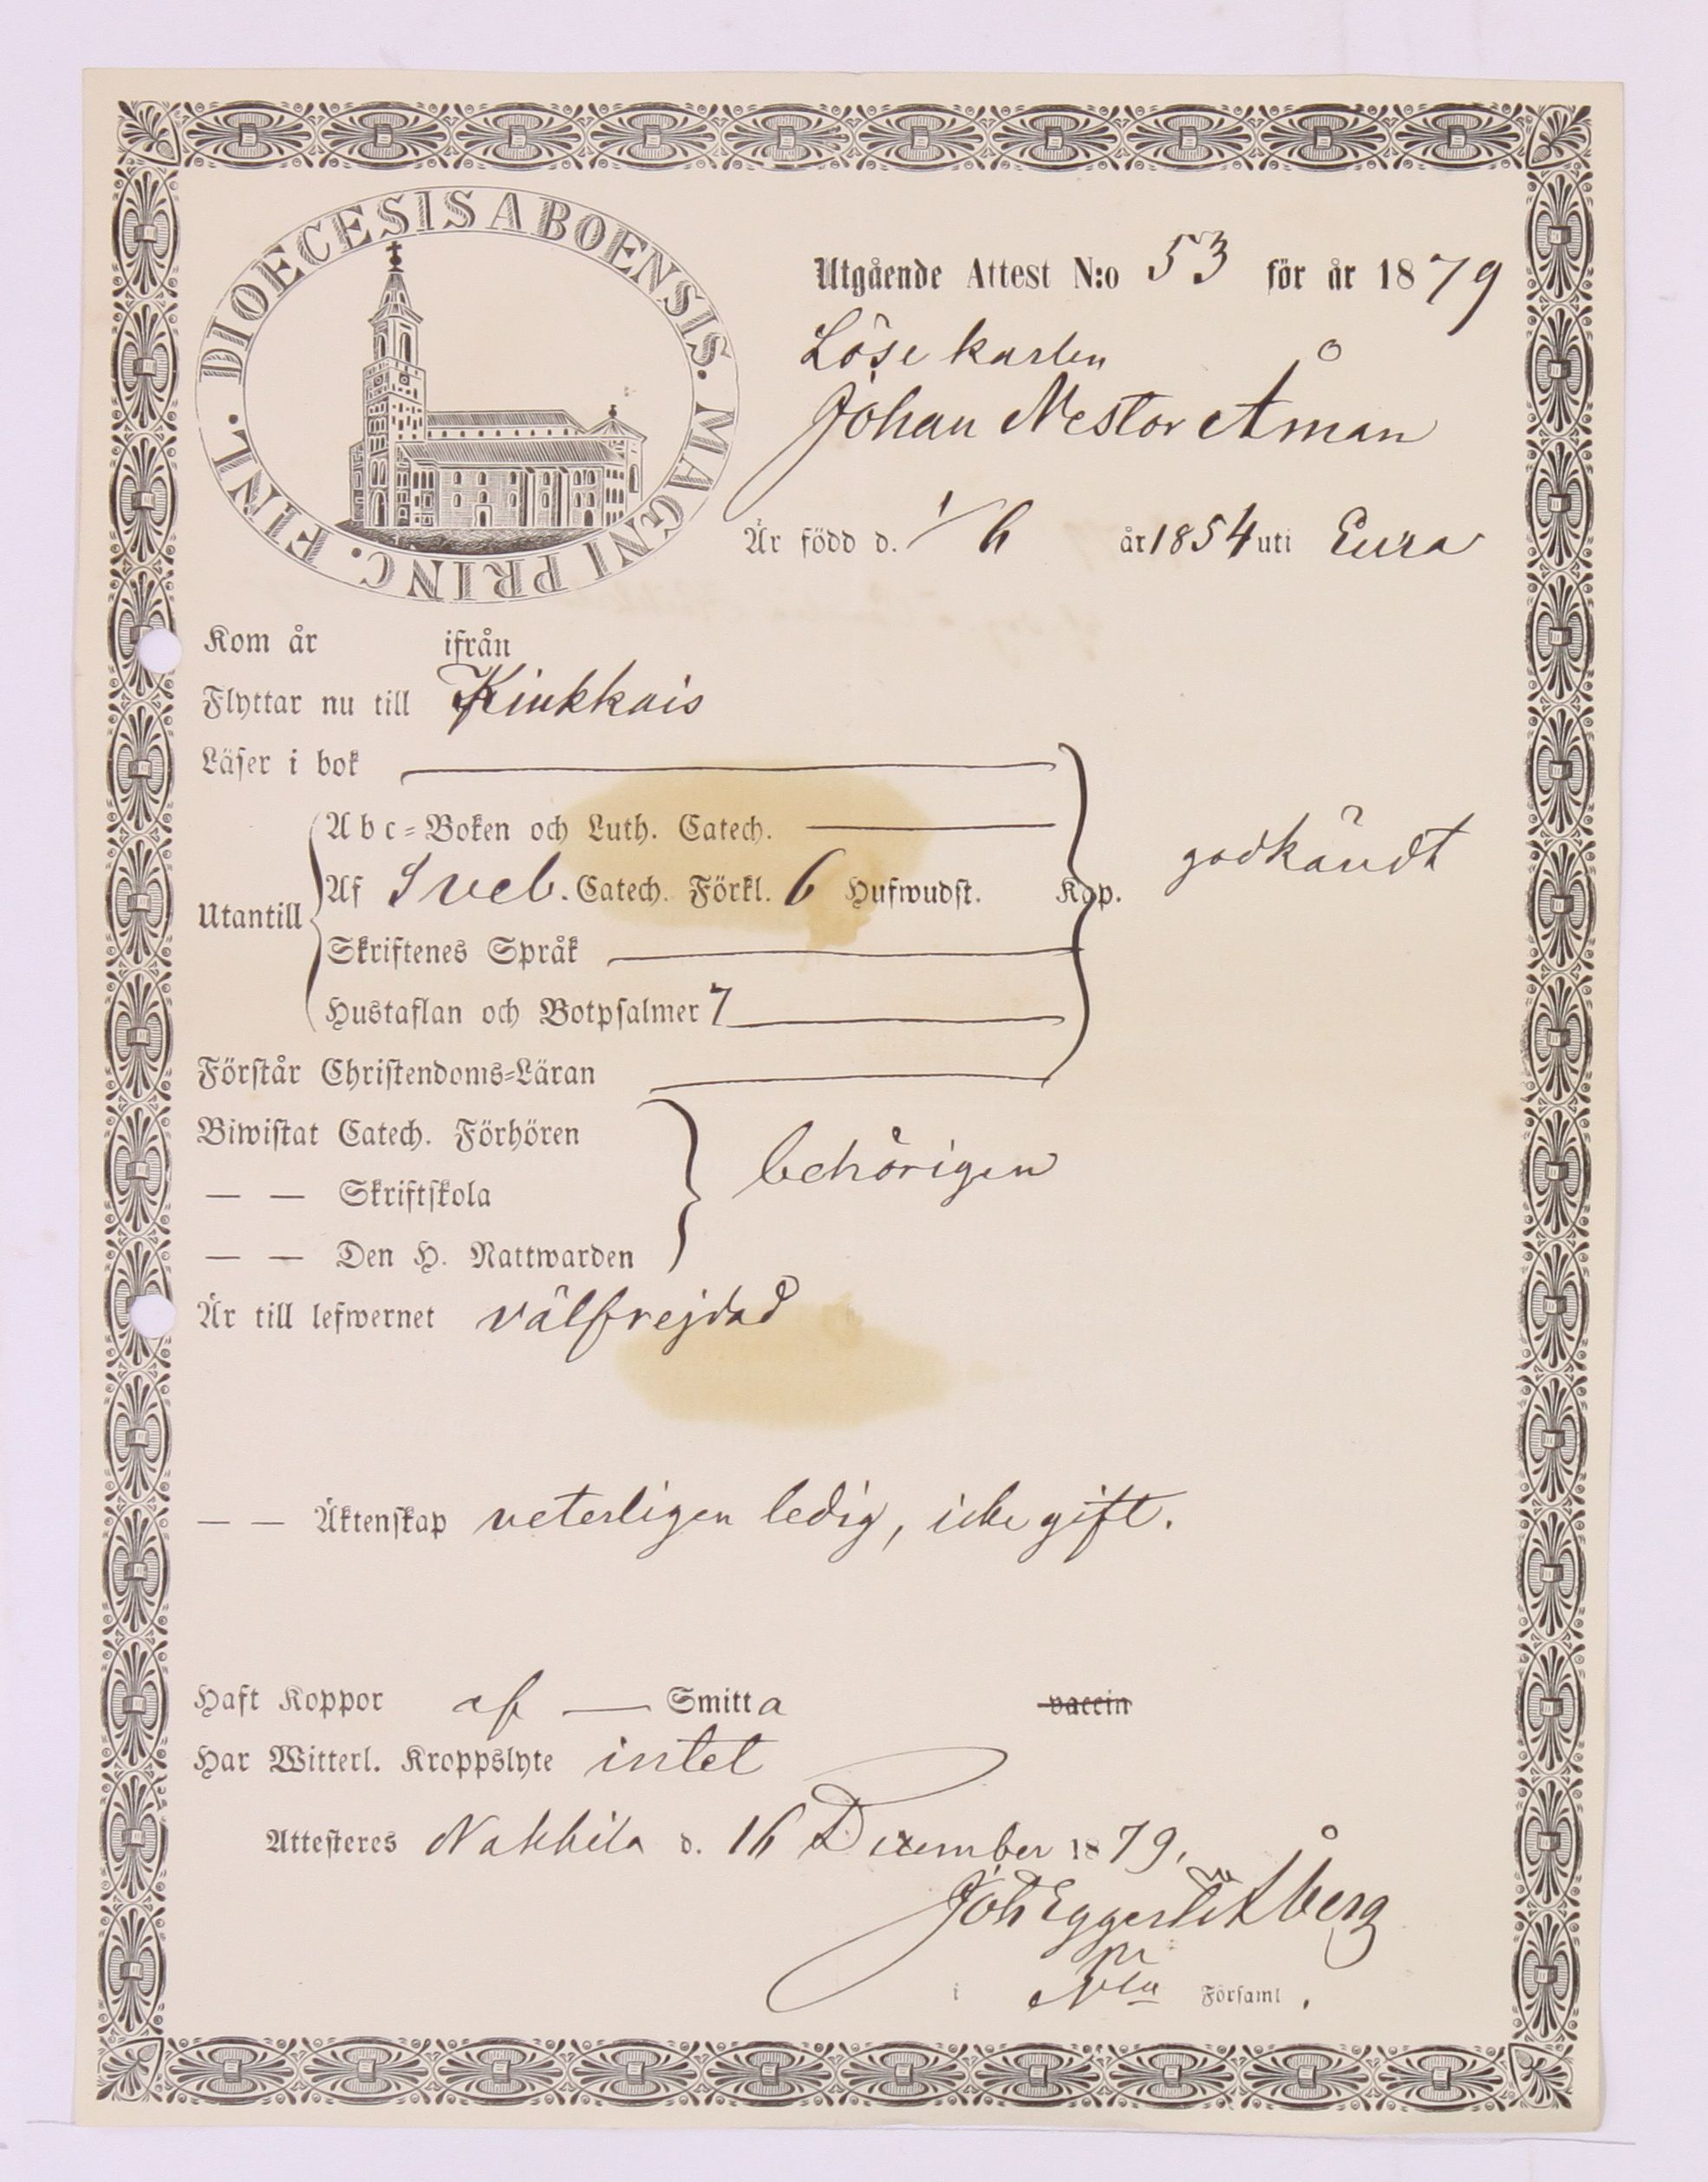 DIOECESIS ABOENSIS. MAGNI PRINC. FINL.
Utgående Attest N:o 53 för år 1879
Lösekarlen
Johan Nestor Åman
Är född d. 1/6 år 1854 uti Eura
Kom år ifrån
Flyttar nu till Kiukkais
Läser i bok
Abc-Boken och Luth. Catech.
godkändt
Utantill
Af Sveb. Catech. Förkl. 6 Hufwudst. Kap.
Skriftenes Språk
Hustaflan och Botpsalmer 7
Förstår Christendoms-Läran
Biwistat Catech. Förhören
behörigen
— — Skriftskola
— — Den H. Nattwarden
Är till lefwernet välfrejdad
— — Äktenskap veterligen ledig, icke gift.
Haft Koppor af — Smitta vaccin
Har Witterl. Kroppslyte intet
Attesteres Nakkila d. 16 December 1879.
Joh Eggert Åberg
i Församl.